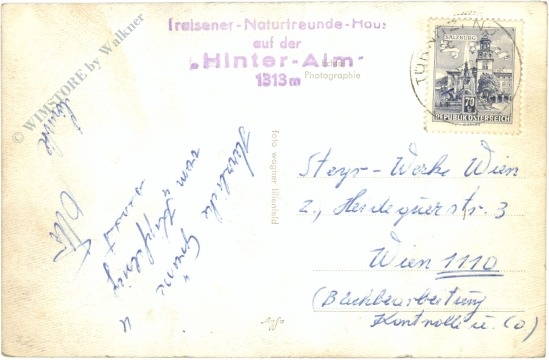 Traisener-Naturfreunde-Haus
auf der
„Hinter-Alm"
1313 m
Echte
Photographie
SALZBURG
70
REPUBLIK ÖSTERREICH
© WIMSTORE by Walkner
foto wagner lilienfeld
Herzliche
Grüße
vom
Otto
Steyr-Werke Wien
2., Heidequerstr. 3
Wien 1110
(Blechbearbeitung
Kontrolle u. Co)